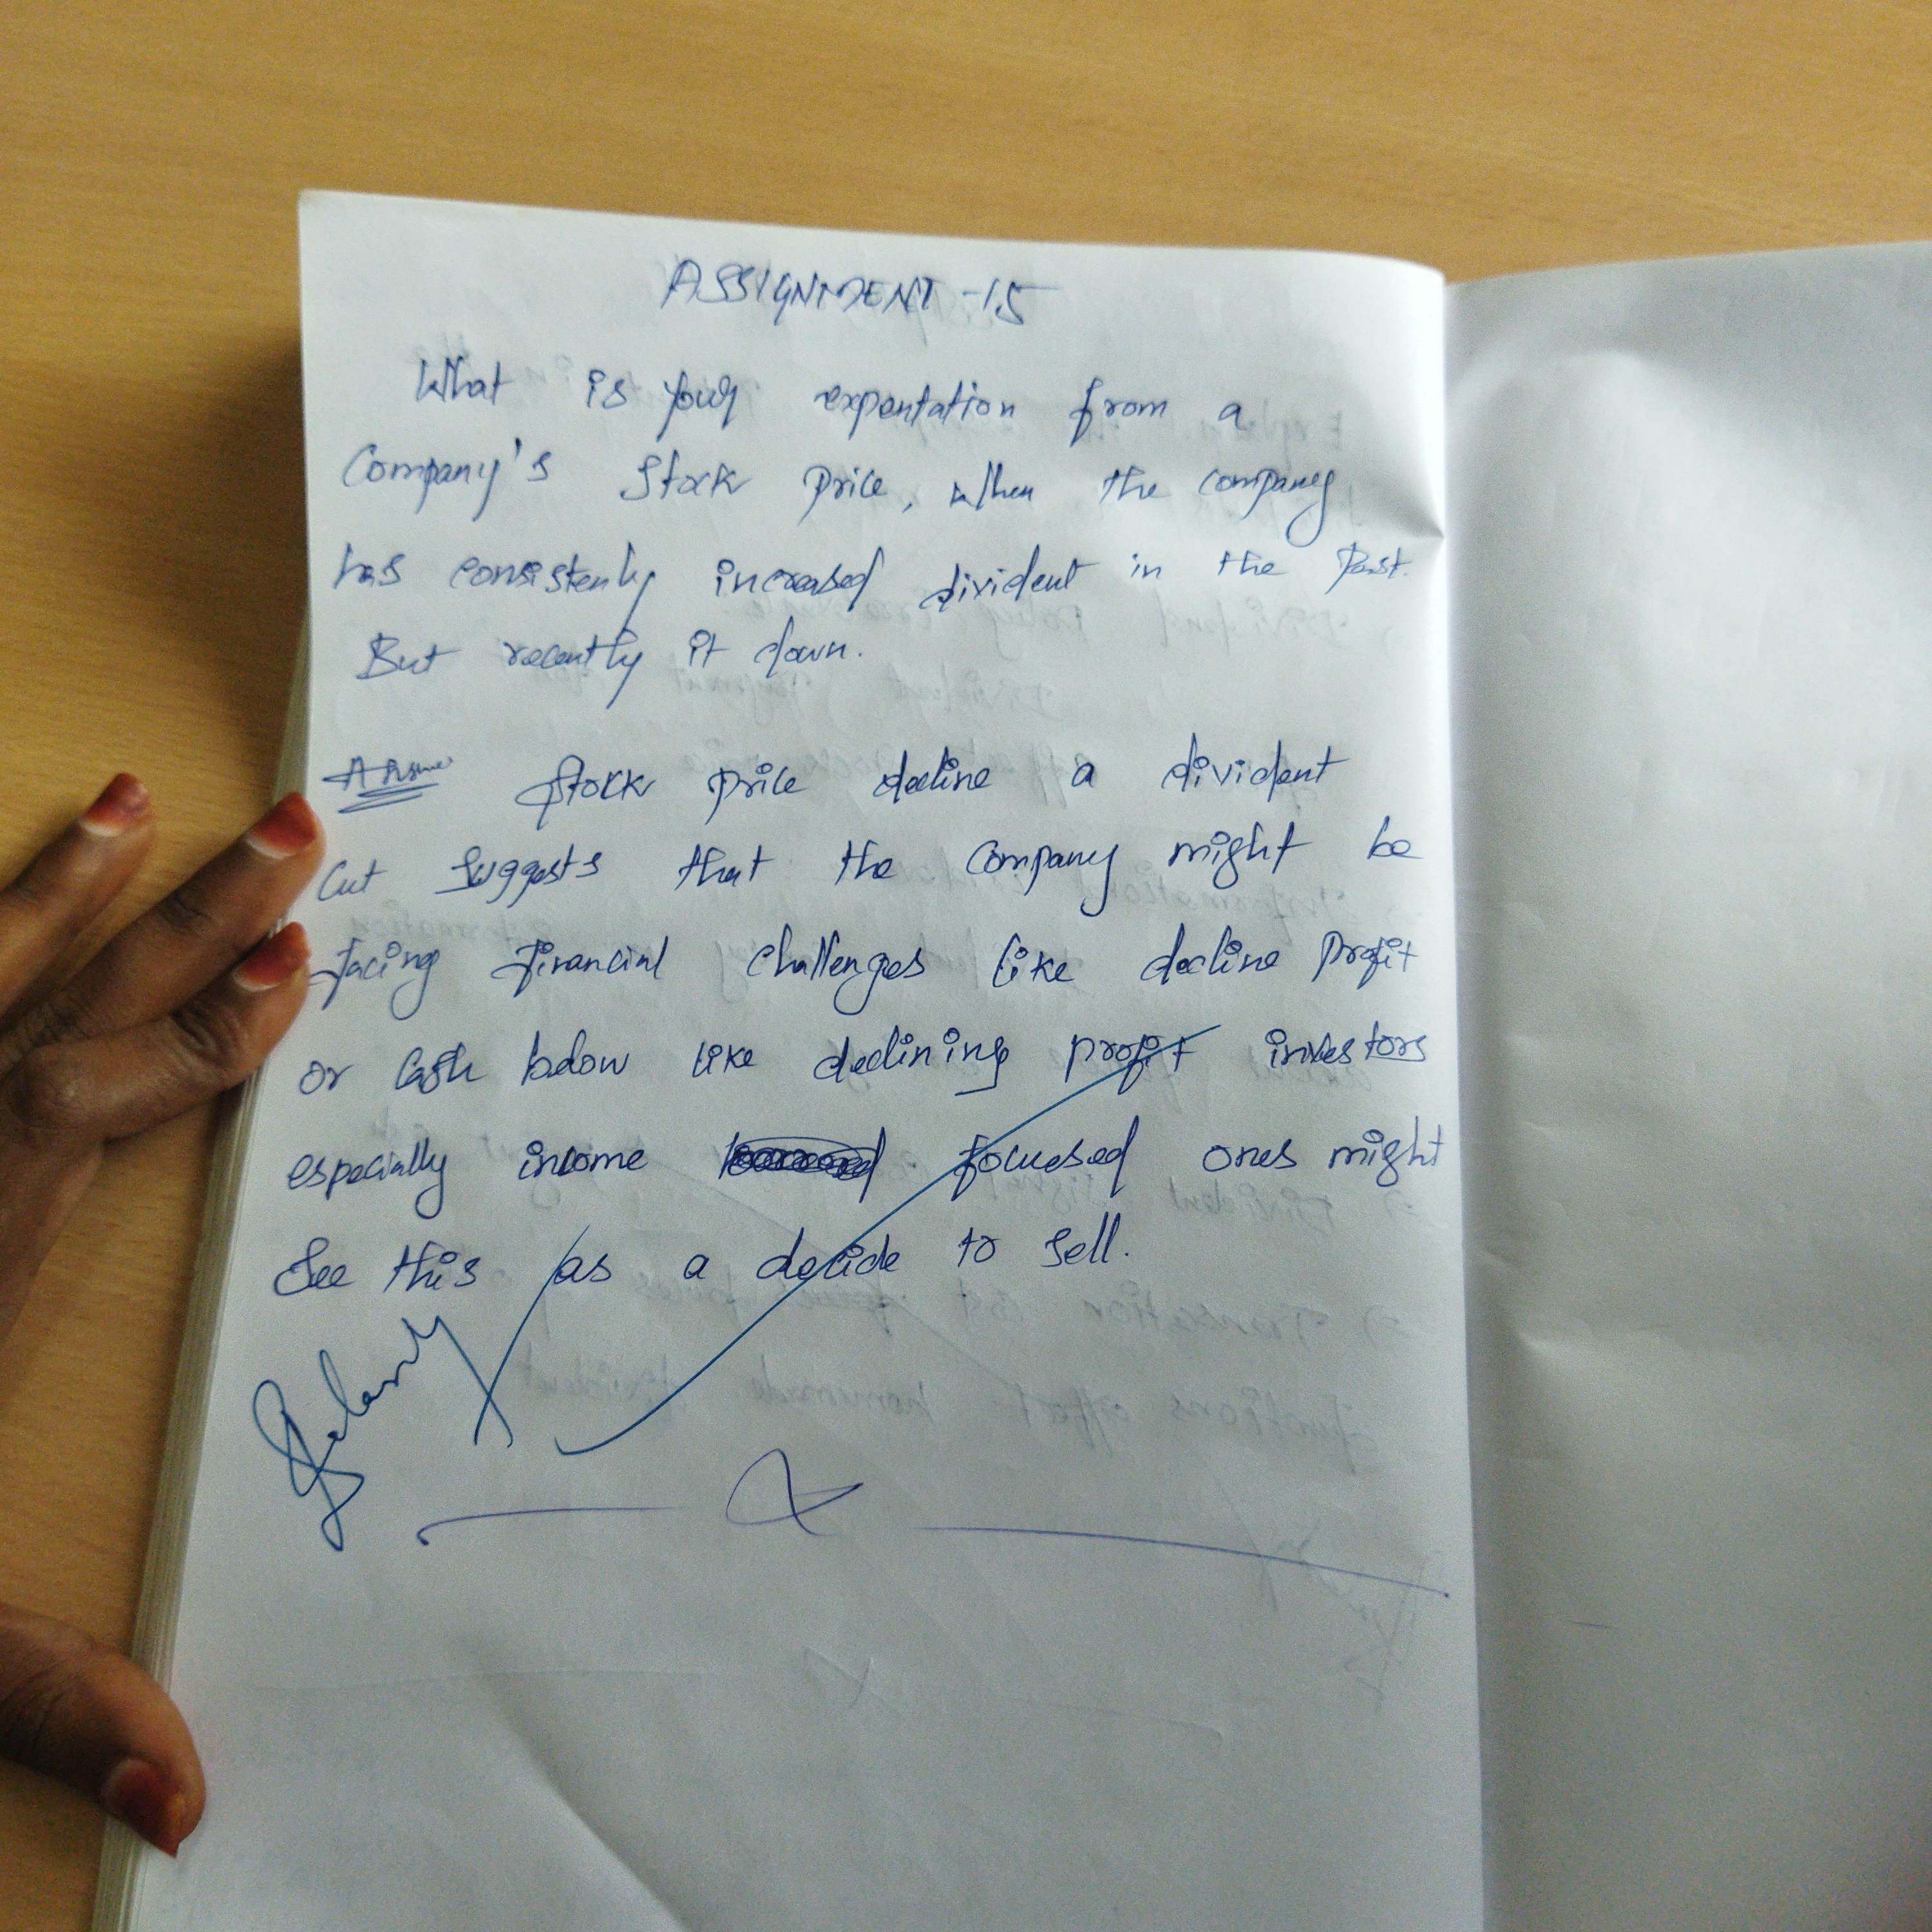 ASSIGNMENT -15
What is your expentation from a
Company's Stock Price, when the company
has consistenly increased divident in the Past.
But recently it down.
Answer Stock price decline a divident
Cut Suggests that the Company might be
facing financial challenges like decline Profit
or Cash below like declining profit investors
especially income focused ones might
See this as a decide to sell.